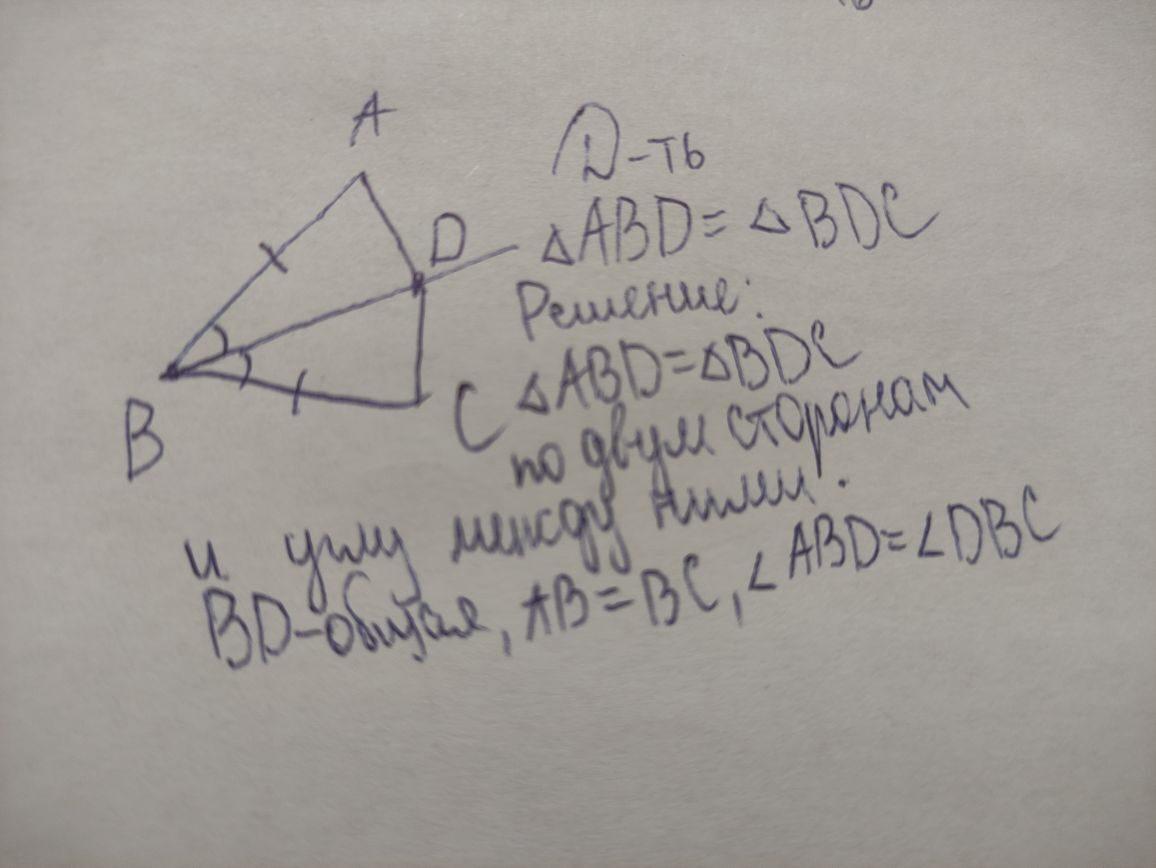 A
D
B
C
D-ть
△ABD = △BDC
Решение:
△ABD=△BDC
по двум сторонам
и углу между ними.
BD-общая, AB=BC, ∠ABD=∠DBC